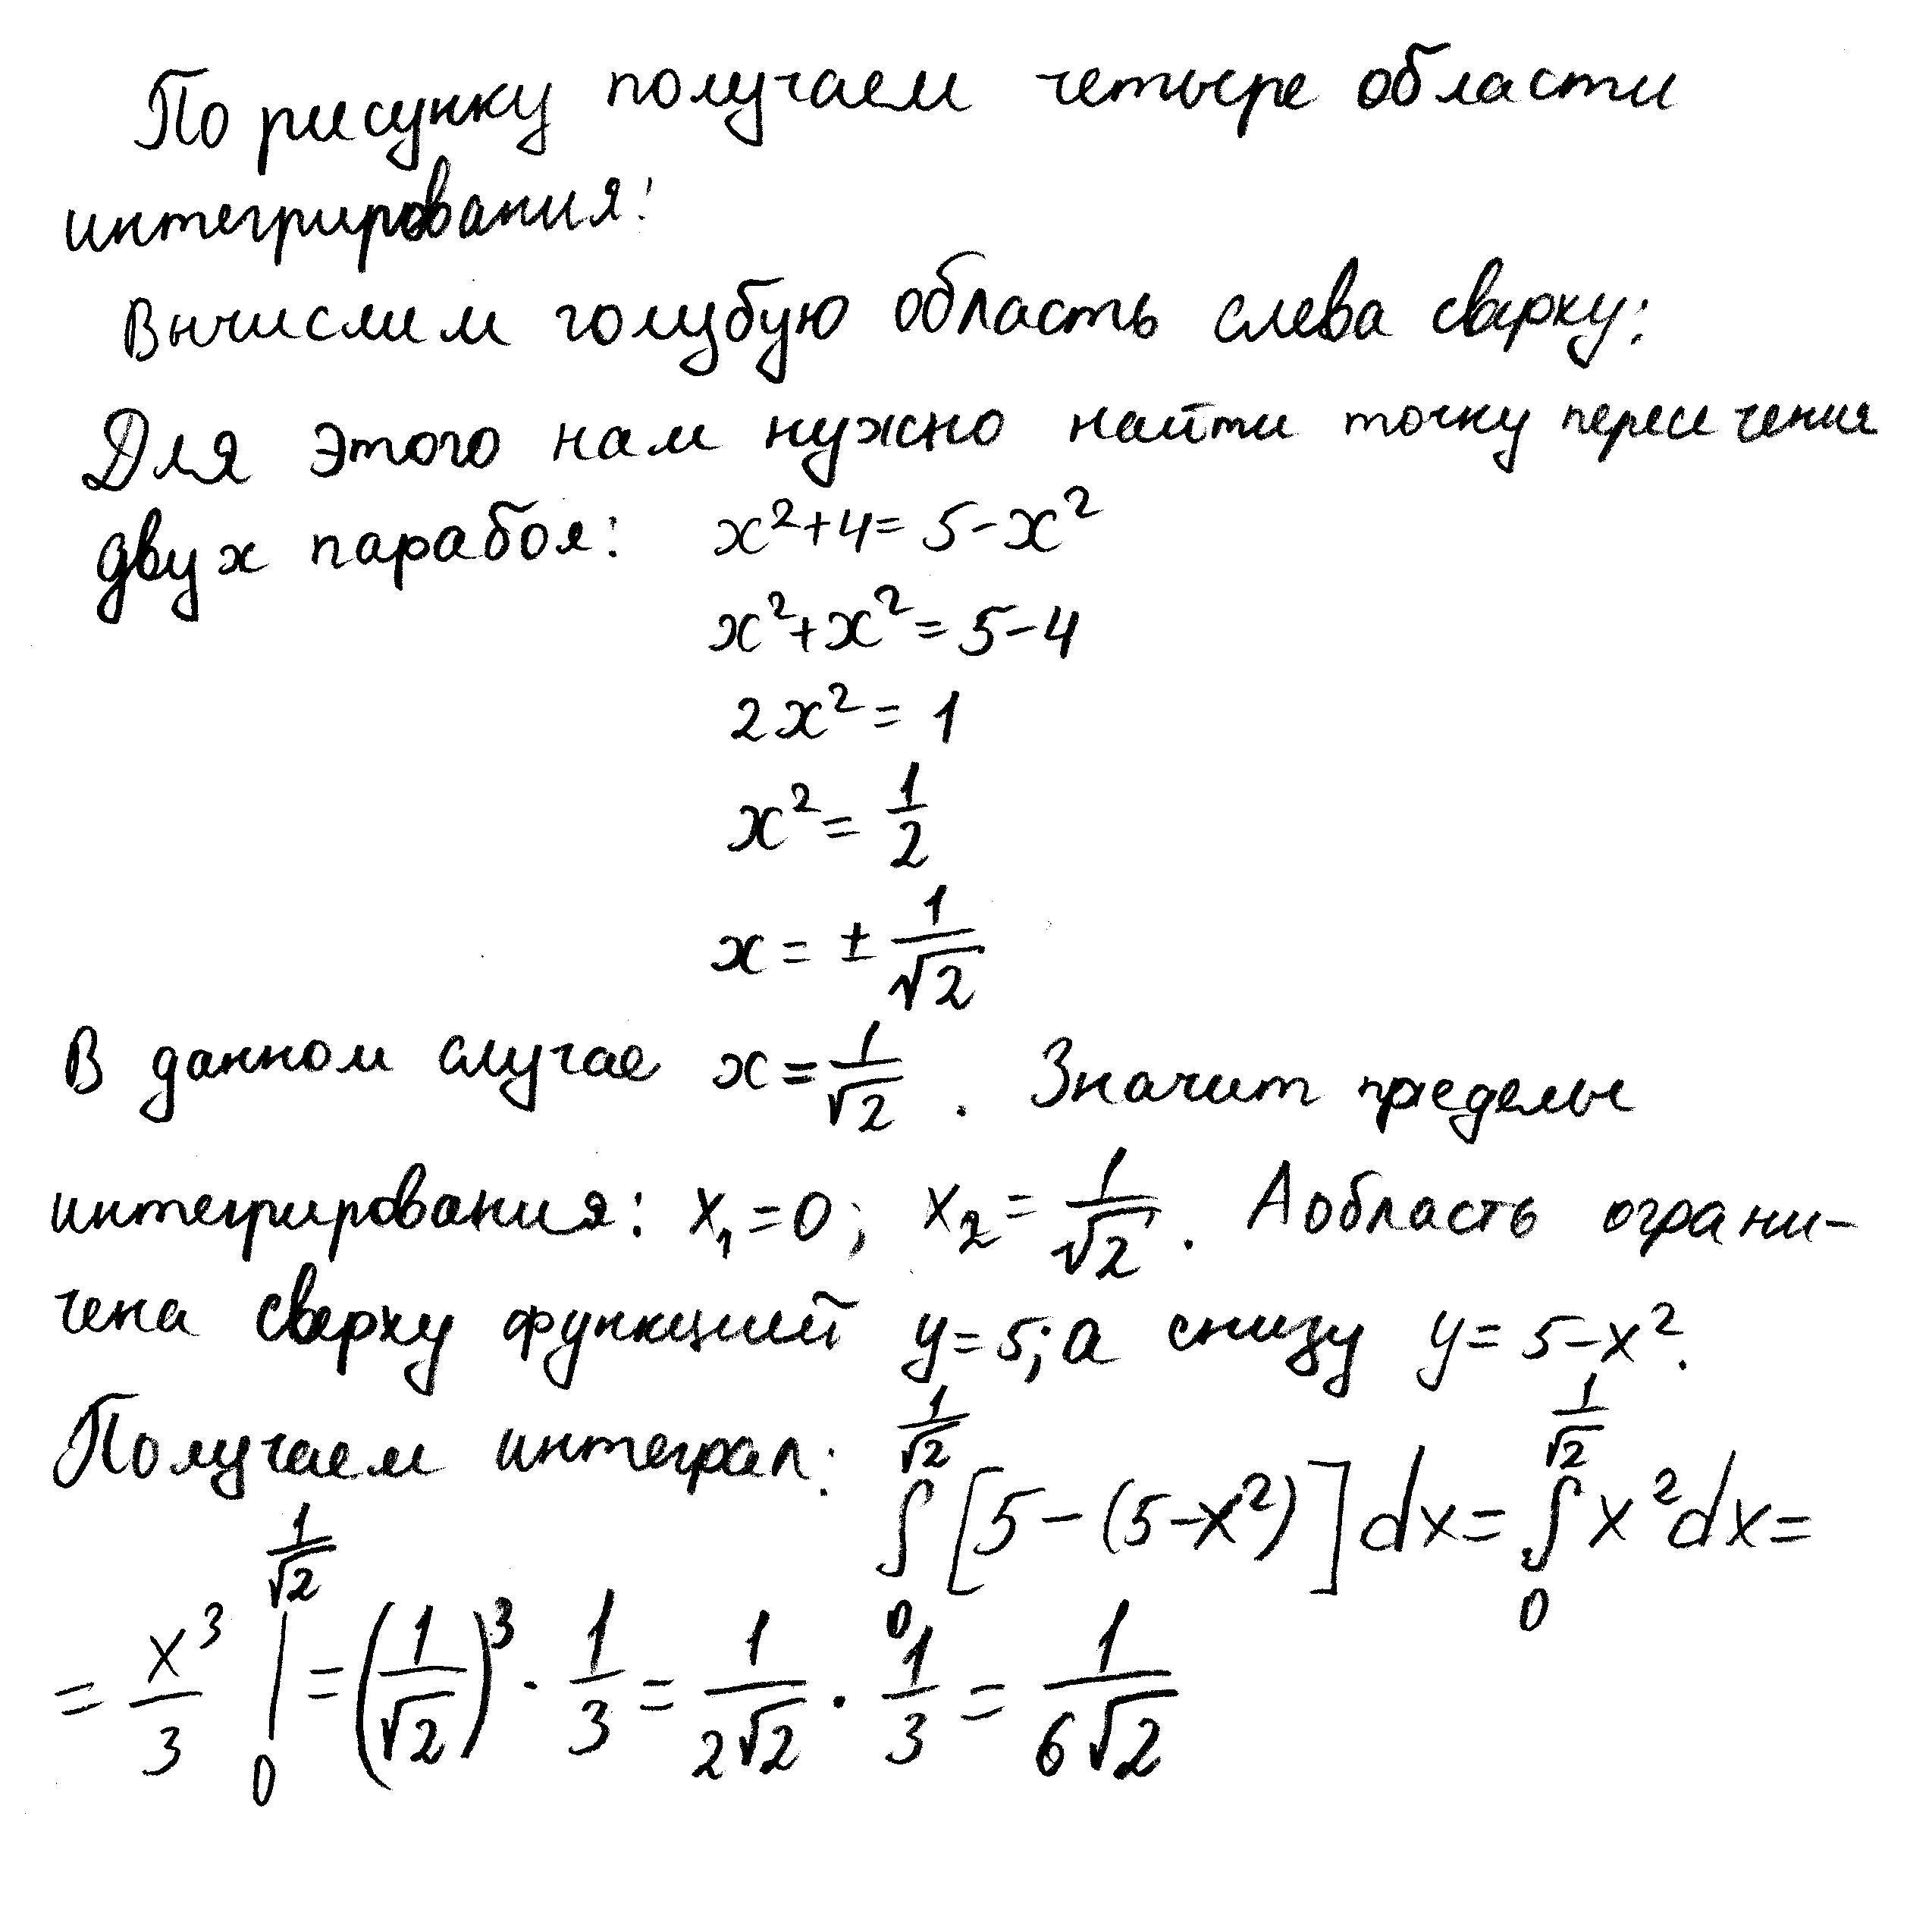 По рисунку получаем четыре области
интегрирования:
Вычислим голубую область слева сверху:
Для этого нам нужно найти точку пересечения
двух парабол: x²+4=5-x²
x²+x²=5-4
2x²=1
x²=1/2
x=±1/√2
В данном случае x=1/√2. Значит пределы
интегрирования: x₁=0; x₂=1/√2. А область ограни-
чена сверху функцией y=5; а снизу y=5-x².
Получаем интеграл: ∫₀^(1/√2) [5-(5-x²)]dx= ∫₀^(1/√2) x²dx=
= x³/3 |₀^(1/√2) =(1/√2)³·1/3=1/(2√2)·1/3=1/(6√2)